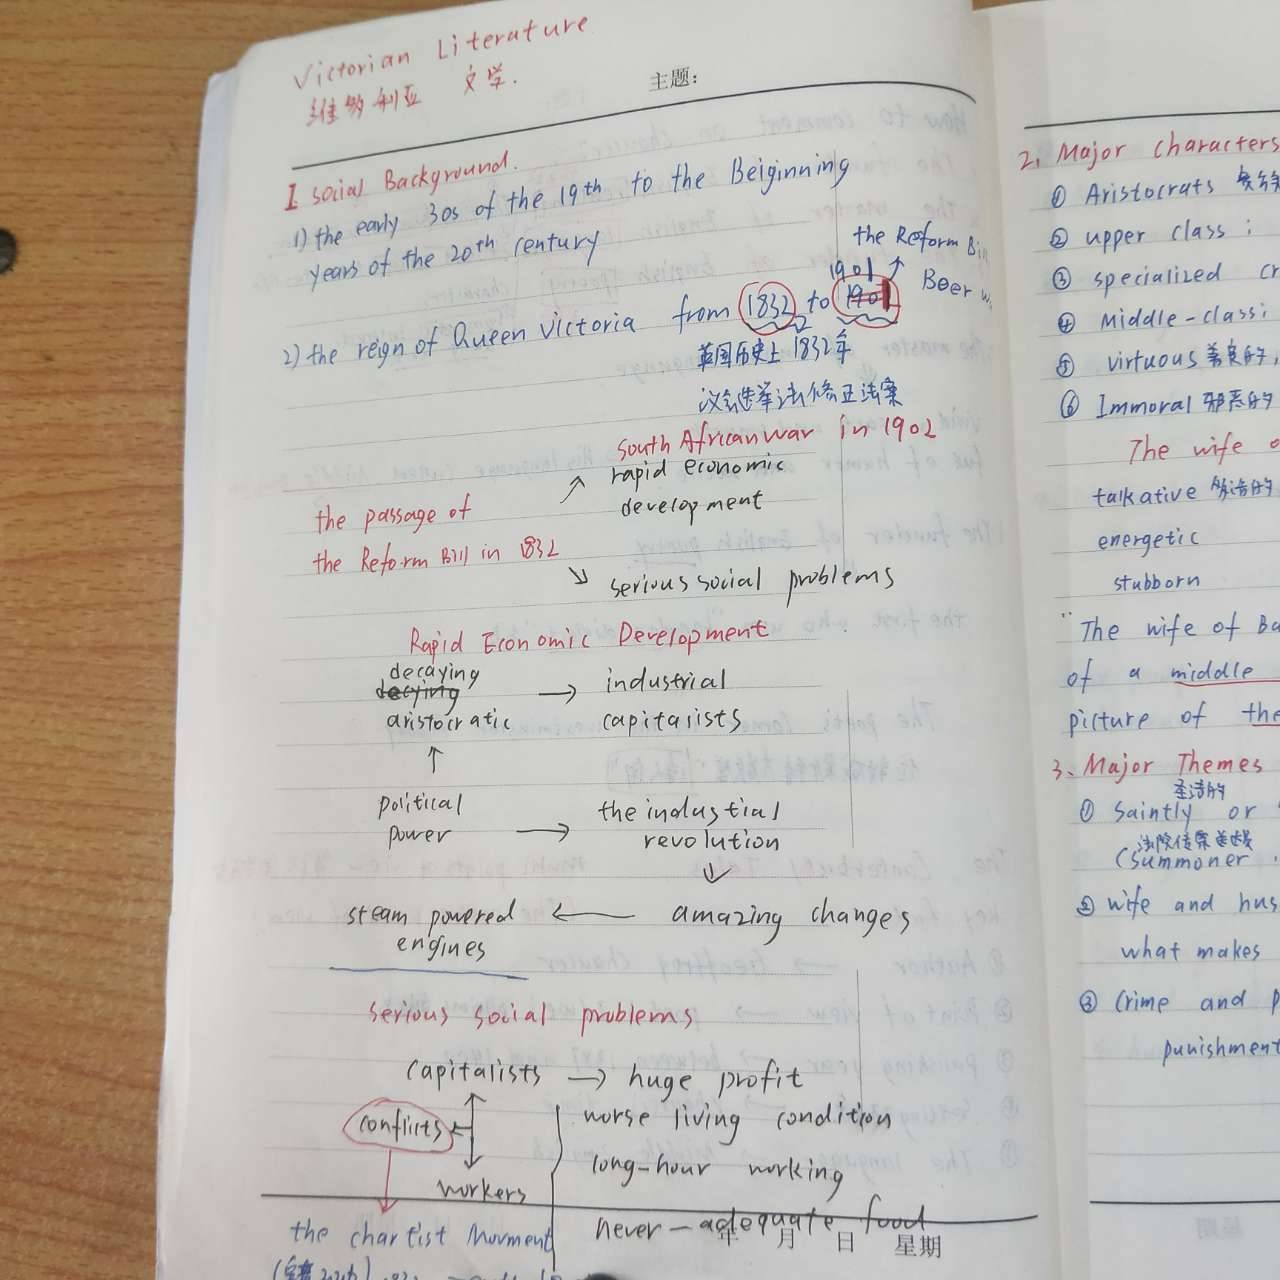 Victorian Literature
维多利亚 文学.
主题:
I social Background.
1) the early 30s of the 19th to the Beiginning
years of the 20th century
the Reform
Beer
1901
2) the reign of Queen Victoria from 1832 to 1901
英国历史上 1832年
议会选举法修正法案
South African war in 1902
rapid economic
development
the passage of
the Reform Bill in 1832
serious social problems
Rapid Economic Development
decaying → industrial
aristocratic capitalists
political the industial
power → revolution
steam powered ← amazing changes
engines
serious social problems
capitalists → huge profit
conflicts worse living condition
long-hour working
workers
never - adequate food
the chartist Movment
年 月 日 星期
2. Major characters
① Aristocrats
② upper class :
③ specialized
④ Middle-class:
⑤ virtuous 善良的,
⑥ Immoral 邪恶的
The wife
talkative 多话的
energetic
stubborn
"The wife of
of a middle
picture of the
3. Major Themes
圣洁的
① Saintly or
(Summoner
② wife and
what makes
③ Crime and
punishment